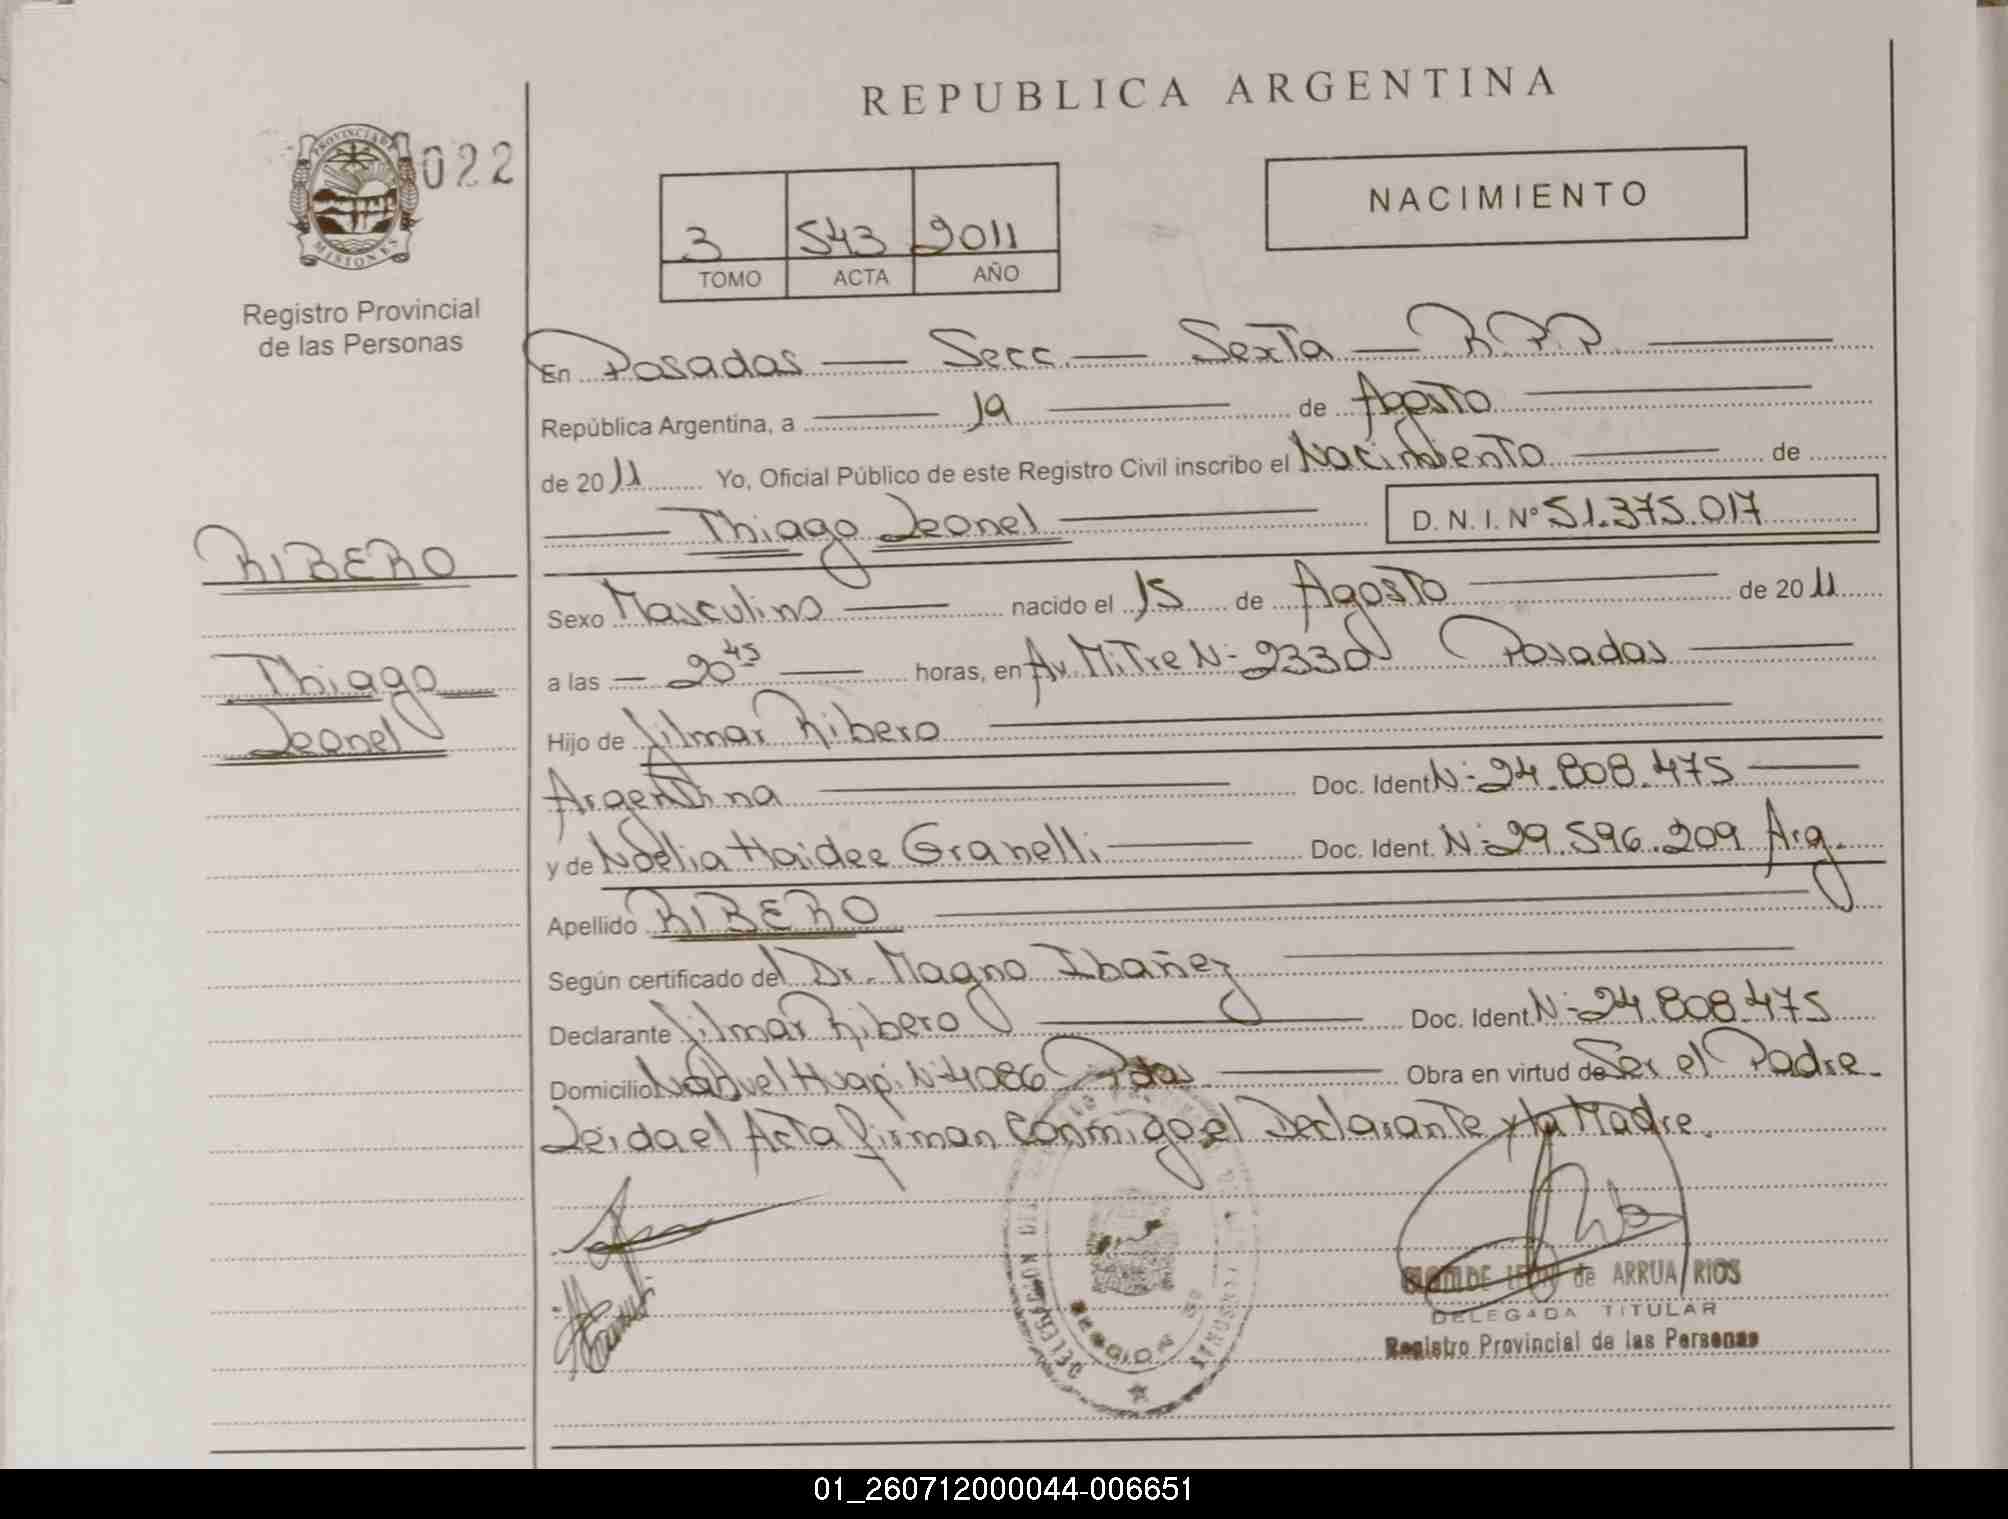 REPUBLICA ARGENTINA
PROVINCIA DE
MISIONES
022
NACIMIENTO
3 543 2011
TOMO ACTA AÑO
Registro Provincial
de las Personas
En Posadas — Secc. — Sexta — R.P.P.
República Argentina, a 19 de Agosto
de 2011 Yo, Oficial Público de este Registro Civil inscribo el Nacimiento de
Thiago Leonel D. N. I. Nº 51.375.017
RIBERO
Thiago
Leonel
Sexo Masculino nacido el 15 de Agosto de 2011
a las — 20 45 — horas, en Av. Mitre N- 2330 Posadas
Hijo de Jilmar Ribero
Argentina Doc. Ident. N:-24.808.475
y de Noelia Haidee Granelli Doc. Ident. N:-29.596.209 Arg.
Apellido RIBERO
Según certificado del Dr. Magno Ibañez
Declarante Jilmar Ribero Doc. Ident. N:-24.808.475
Domicilio Nahuel Huapi N-4086 Pdas Obra en virtud de Ser el Padre.
Leida el Acta firman Conmigo el Declarante y la Madre.
de ARRUA RIOS
DELEGADA TITULAR
Registro Provincial de las Personas
01_260712000044-006651